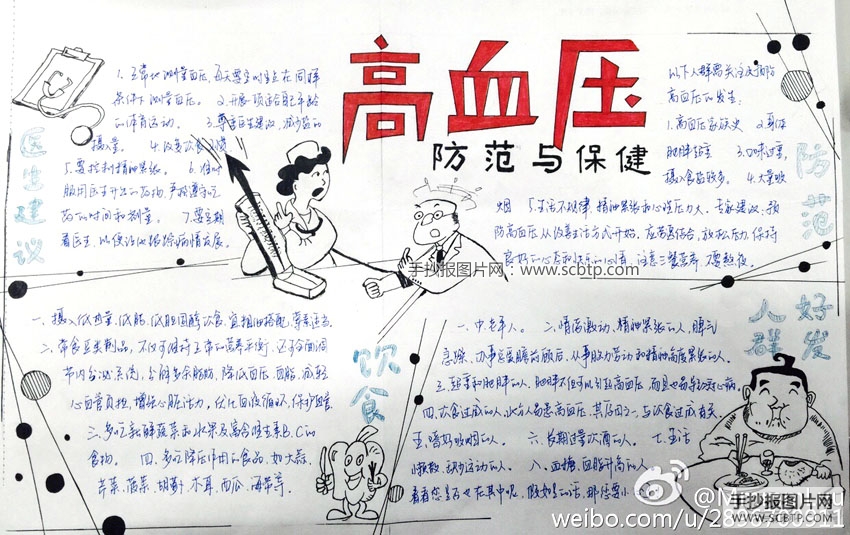 高血压
防范与保健
医生建议
1.正常地测量血压,每天要定时坐在同样
条件下测量血压。 2.开展一项适合自己年龄
的体育运动。 3.尊重医生建议,减少盐的
摄入量。 4.改善饮食习惯
5.要控制精神紧张。 6.准时
服用医生开出的药物,严格遵守吃
药的时间和剂量。 7.要定期
看医生,以便让他跟踪病情发展。
防范
以下人群需关注及预防
高血压的发生:
1.高血压家族史 2.身体
肥胖超重 3.口味过重,
摄入食盐较多。 4.大量吸
烟 5.生活不规律,精神紧张和心理压力大。专家建议,预
防高血压从改善生活方式开始,应劳逸结合,放松压力,保持
良好的心态和快乐的心情,注意三餐营养,不要熬夜。
手抄报图片网:www.scbtp.com
饮食
一、摄入低热量、低脂、低胆固醇饮食,宜粗细搭配,荤素适当。
二、常食豆类制品,不仅可维持正常的营养平衡,还可全面调
节内分泌系统,分解多余脂肪,降低血压、血脂,减轻
心血管负担,增强心脏活力,优化血液循环,保护血管
三、多吃新鲜蔬菜和水果及富含维生素B、C的
食物。 四、多吃降压作用的食品,如大蒜、
芹菜、菠菜、胡萝卜、木耳、西瓜、海带等。
好发人群
一、中、老年人。 二、情绪激动、精神紧张的人,脾气
急躁、办事爱瞻前顾后,从事脑力劳动和精神高度紧张的人。
三、超重和肥胖的人,肥胖不但可以引起高血压,而且也易患冠心病。
四、饮食过咸的人,此为人易患高血压,其原因之一,与饮食过咸有关。
五、嗜好吸烟的人。 六、长期过量饮酒的人。 七、生活
懒散、缺少运动的人。 八、血糖、血脂升高的人
看看您是否也在其中呢,假如是的话,那您要小
@M
weibo.com/u/2896769911
手抄报图片网
WWW.SCBTP.COM